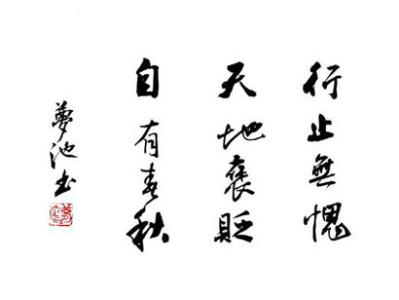 行止無愧
天地褒貶
自有春秋
夢池书